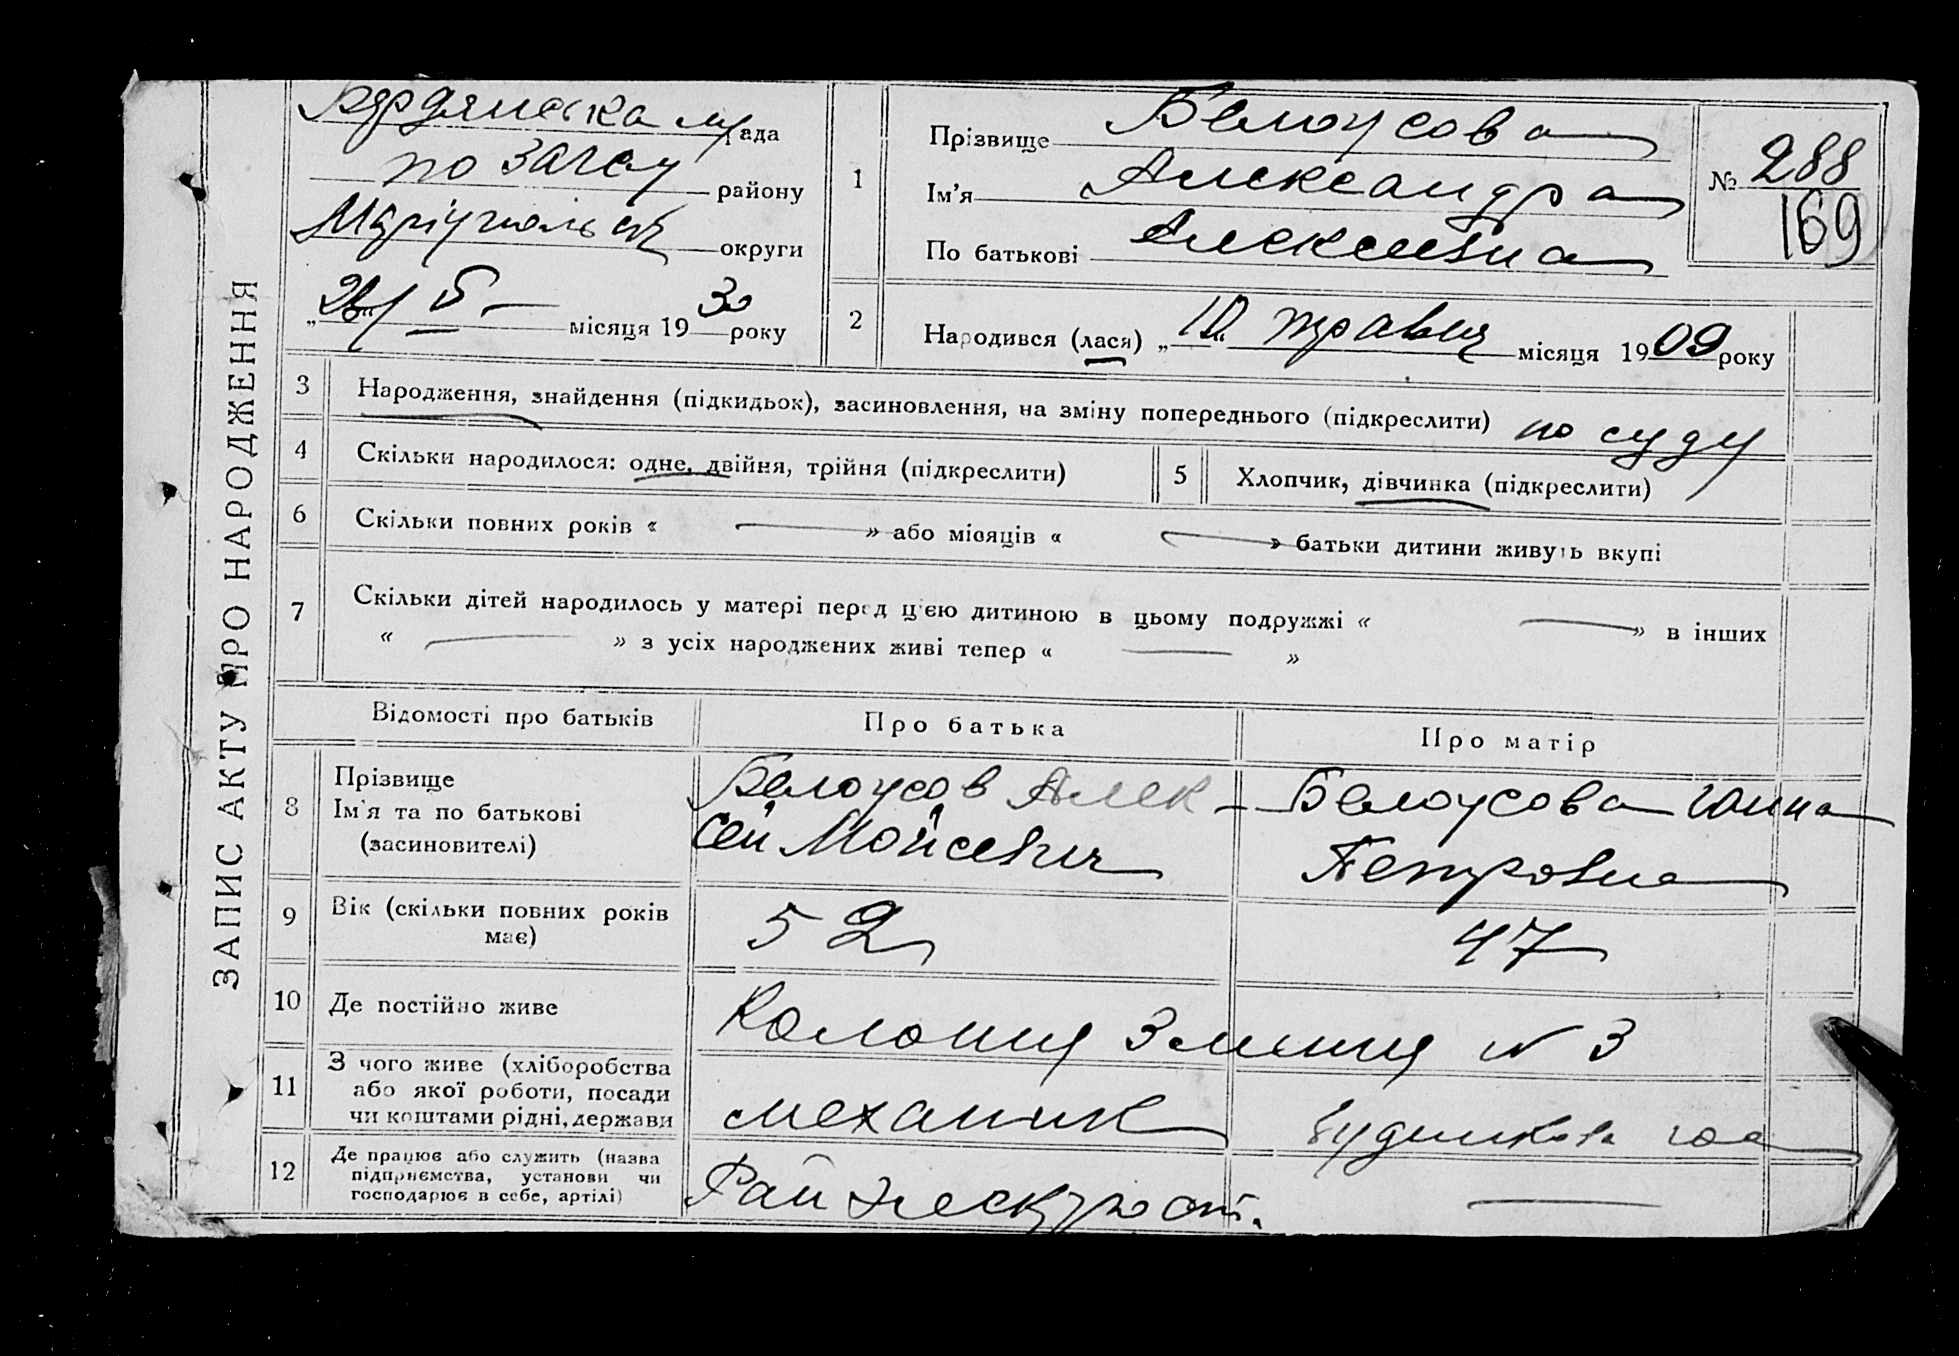 ЗАПИС АКТУ ПРО НАРОДЖЕННЯ
Бердянська м/рада
по Загсу району
Маріупольськ округи
„26/ 5 - місяця 1930 року
1
Прізвище Белоусова
Ім'я Александра
По батькові Алексеевна
№ 288
169
2
Народився (лася) „10“ травня місяця 1909 року
3 Народження, знайдення (підкидьок), засиновлення, на зміну попереднього (підкреслити) по суду
4 Скільки народилося: одне, двійня, трійня (підкреслити)
5 Хлопчик, дівчинка (підкреслити)
6 Скільки повних років « — » або місяців « — » батьки дитини живуть вкупі
7 Скільки дітей народилось у матері перед ц'єю дитиною в цьому подружжі « — » в інших
« — » з усіх народжених живі тепер « — »
Відомості про батьків Про батька Про матір
8 Прізвище
Ім'я та по батькові
(засиновителі)
Белоусов Алек-
сей Мойсевич
Белоусова Ганна
Петровна
9 Вік (скільки повних років
має)
52
47
10 Де постійно живе
Колония Злиния N 3
11 З чого живе (хліборобства
або якої роботи, посади
чи коштами рідні, держави
механик
12 Де працює або служить (назва
підприємства, установи чи
господарює в себе, артілі)